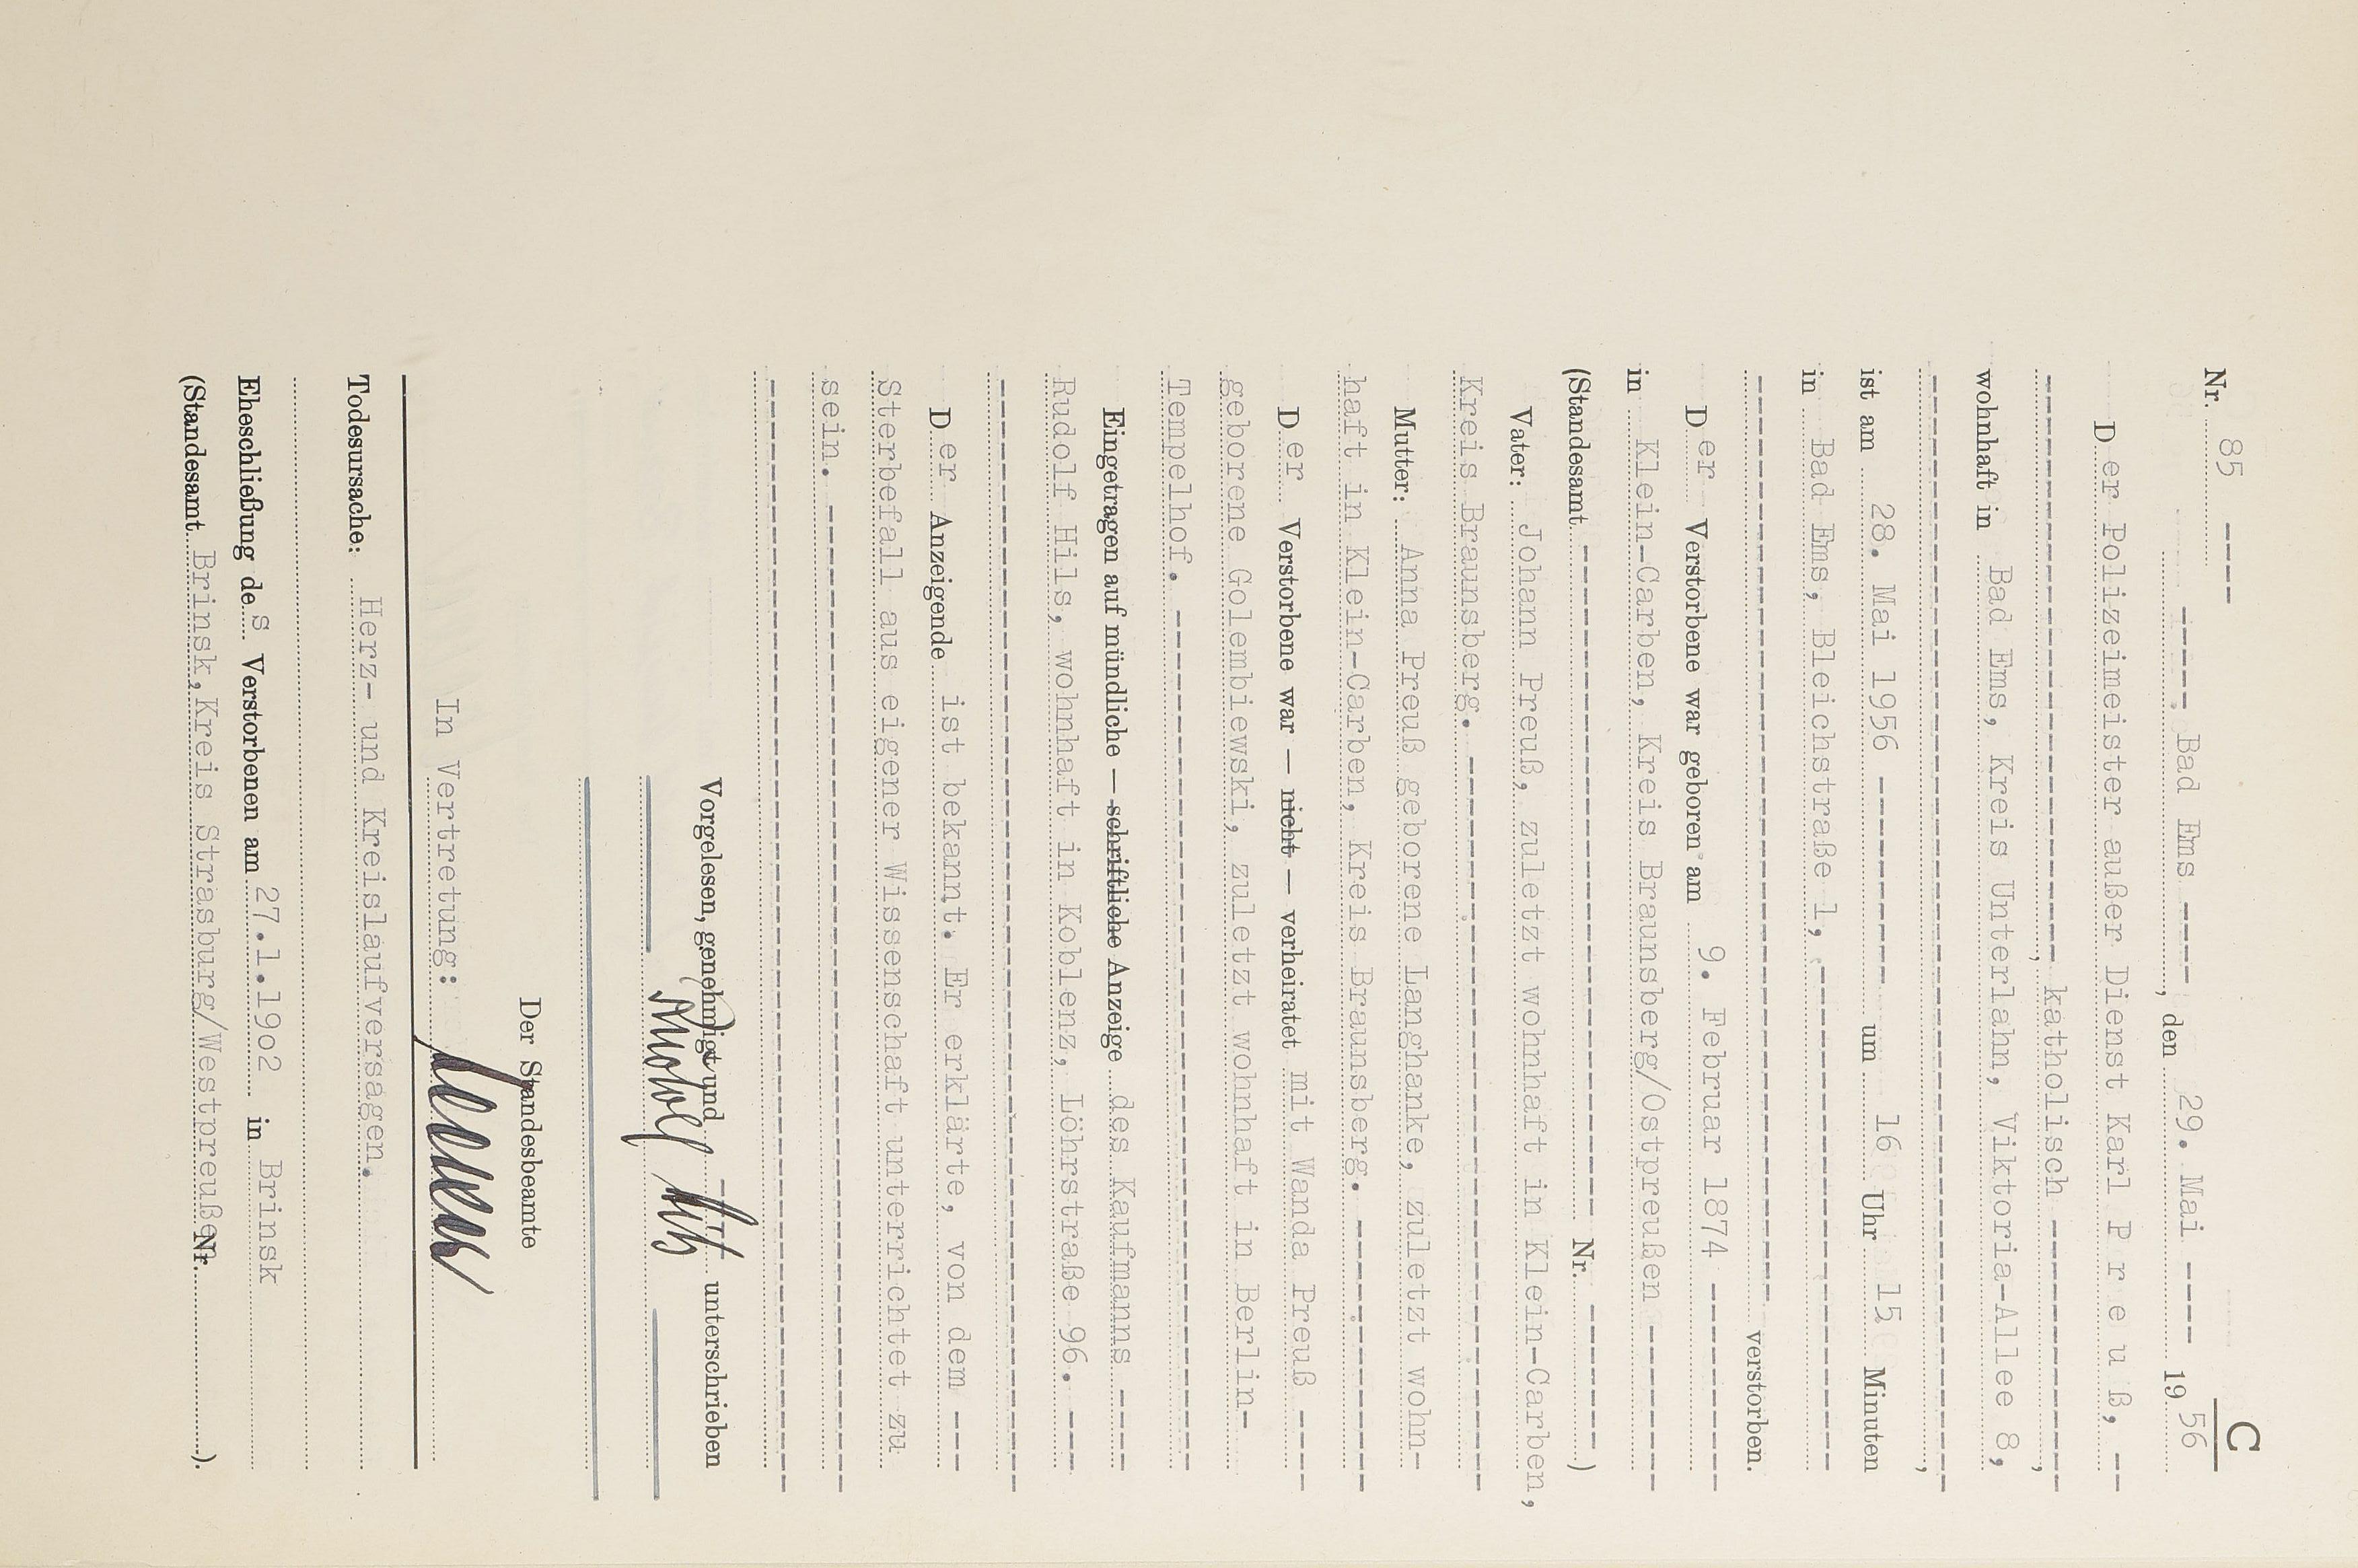 C
Nr. 85 ----
-----, Bad Ems ----, den 29. Mai ---- 1956
Der Polizeimeister außer Dienst Karl P r e u ß, --
----------, katholisch ----------,
wohnhaft in Bad Ems, Kreis Unterlahn, Viktoria-Allee 8,
----------,
ist am 28. Mai 1956 ---------- um 16 Uhr 15 Minuten
in Bad Ems, Bleichstraße 1, ----------
---------- verstorben.
Der Verstorbene war geboren am 9. Februar 1874 ----------
in Klein-Carben, Kreis Braunsberg/Ostpreußen ----------
(Standesamt ---------- Nr. ----------)
Vater: Johann Preuß, zuletzt wohnhaft in Klein-Carben,
Kreis Braunsberg. ----------
Mutter: Anna Preuß geborene Langhanke, zuletzt wohn-
haft in Klein-Carben, Kreis Braunsberg. ----------
Der Verstorbene war — nicht — verheiratet mit Wanda Preuß ----
geborene Golembiewski, zuletzt wohnhaft in Berlin-
Tempelhof. ----------
Eingetragen auf mündliche — schriftliche Anzeige des Kaufmanns ----
Rudolf Hils, wohnhaft in Koblenz, Löhrstraße 96. ---
----------
Der Anzeigende ist bekannt. Er erklärte, von dem ---
Sterbefall aus eigener Wissenschaft unterrichtet zu
sein. ----------
----------
Vorgelesen, genehmigt und ---- unterschrieben
Rudolf Hils
Der Standesbeamte
In Vertretung:
Todesursache: Herz- und Kreislaufversagen.
Eheschließung des Verstorbenen am 27.1.1902 in Brinsk
(Standesamt Brinsk,Kreis Strasburg/Westpreußen Nr. ).